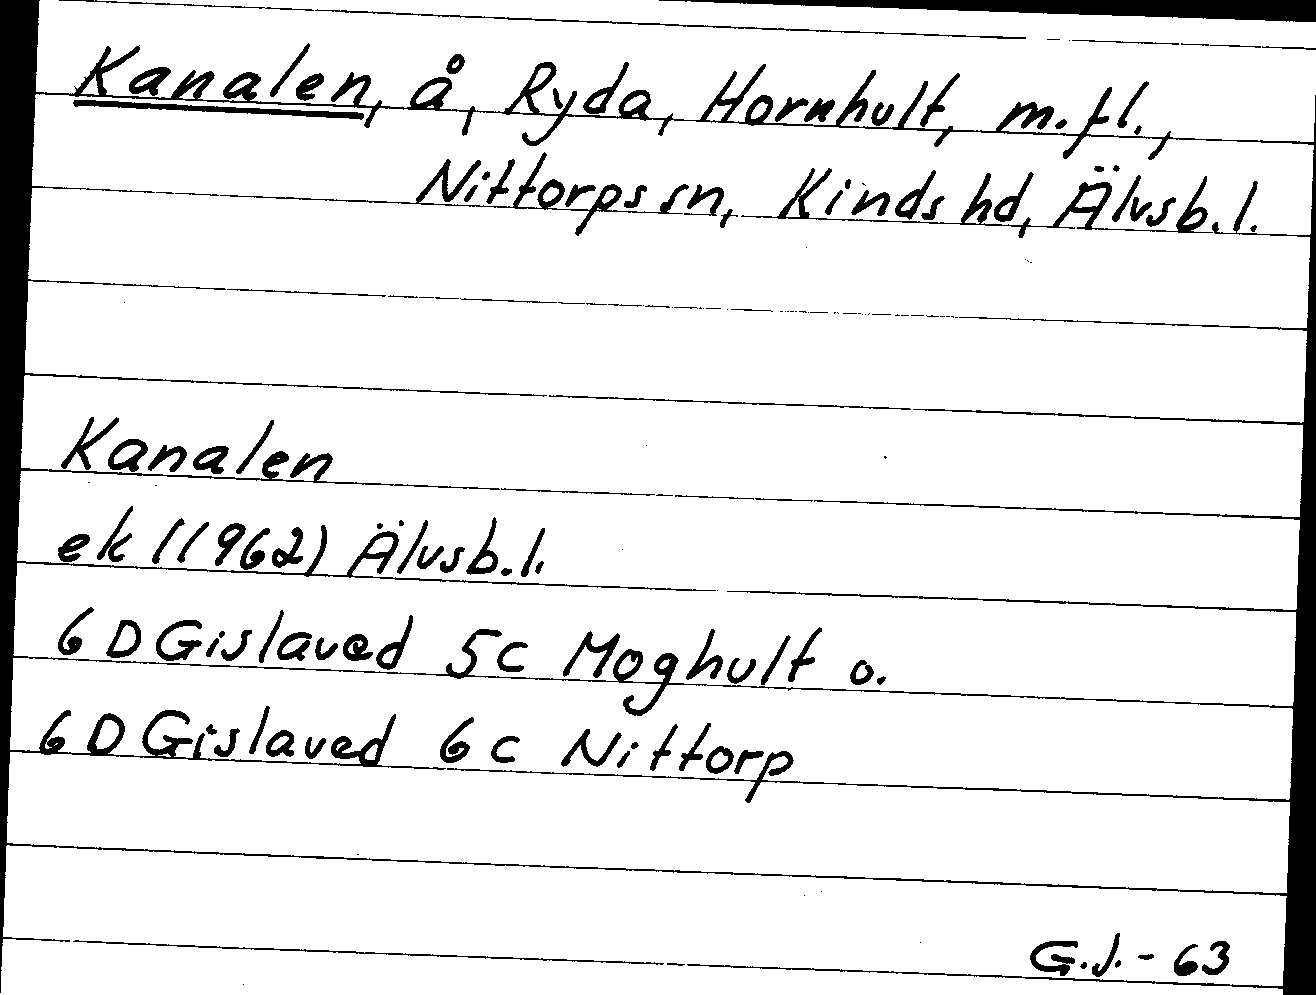 Kanalen, å, Ryda, Hornhult, m.fl.,
Nittorps sn, Kinds hd, Älvsb.l.
Kanalen
ek (1962) Älvsb.l.
6 D Gislaved 5c Moghult o.
6 D Gislaved 6c Nittorp
G.J.-63